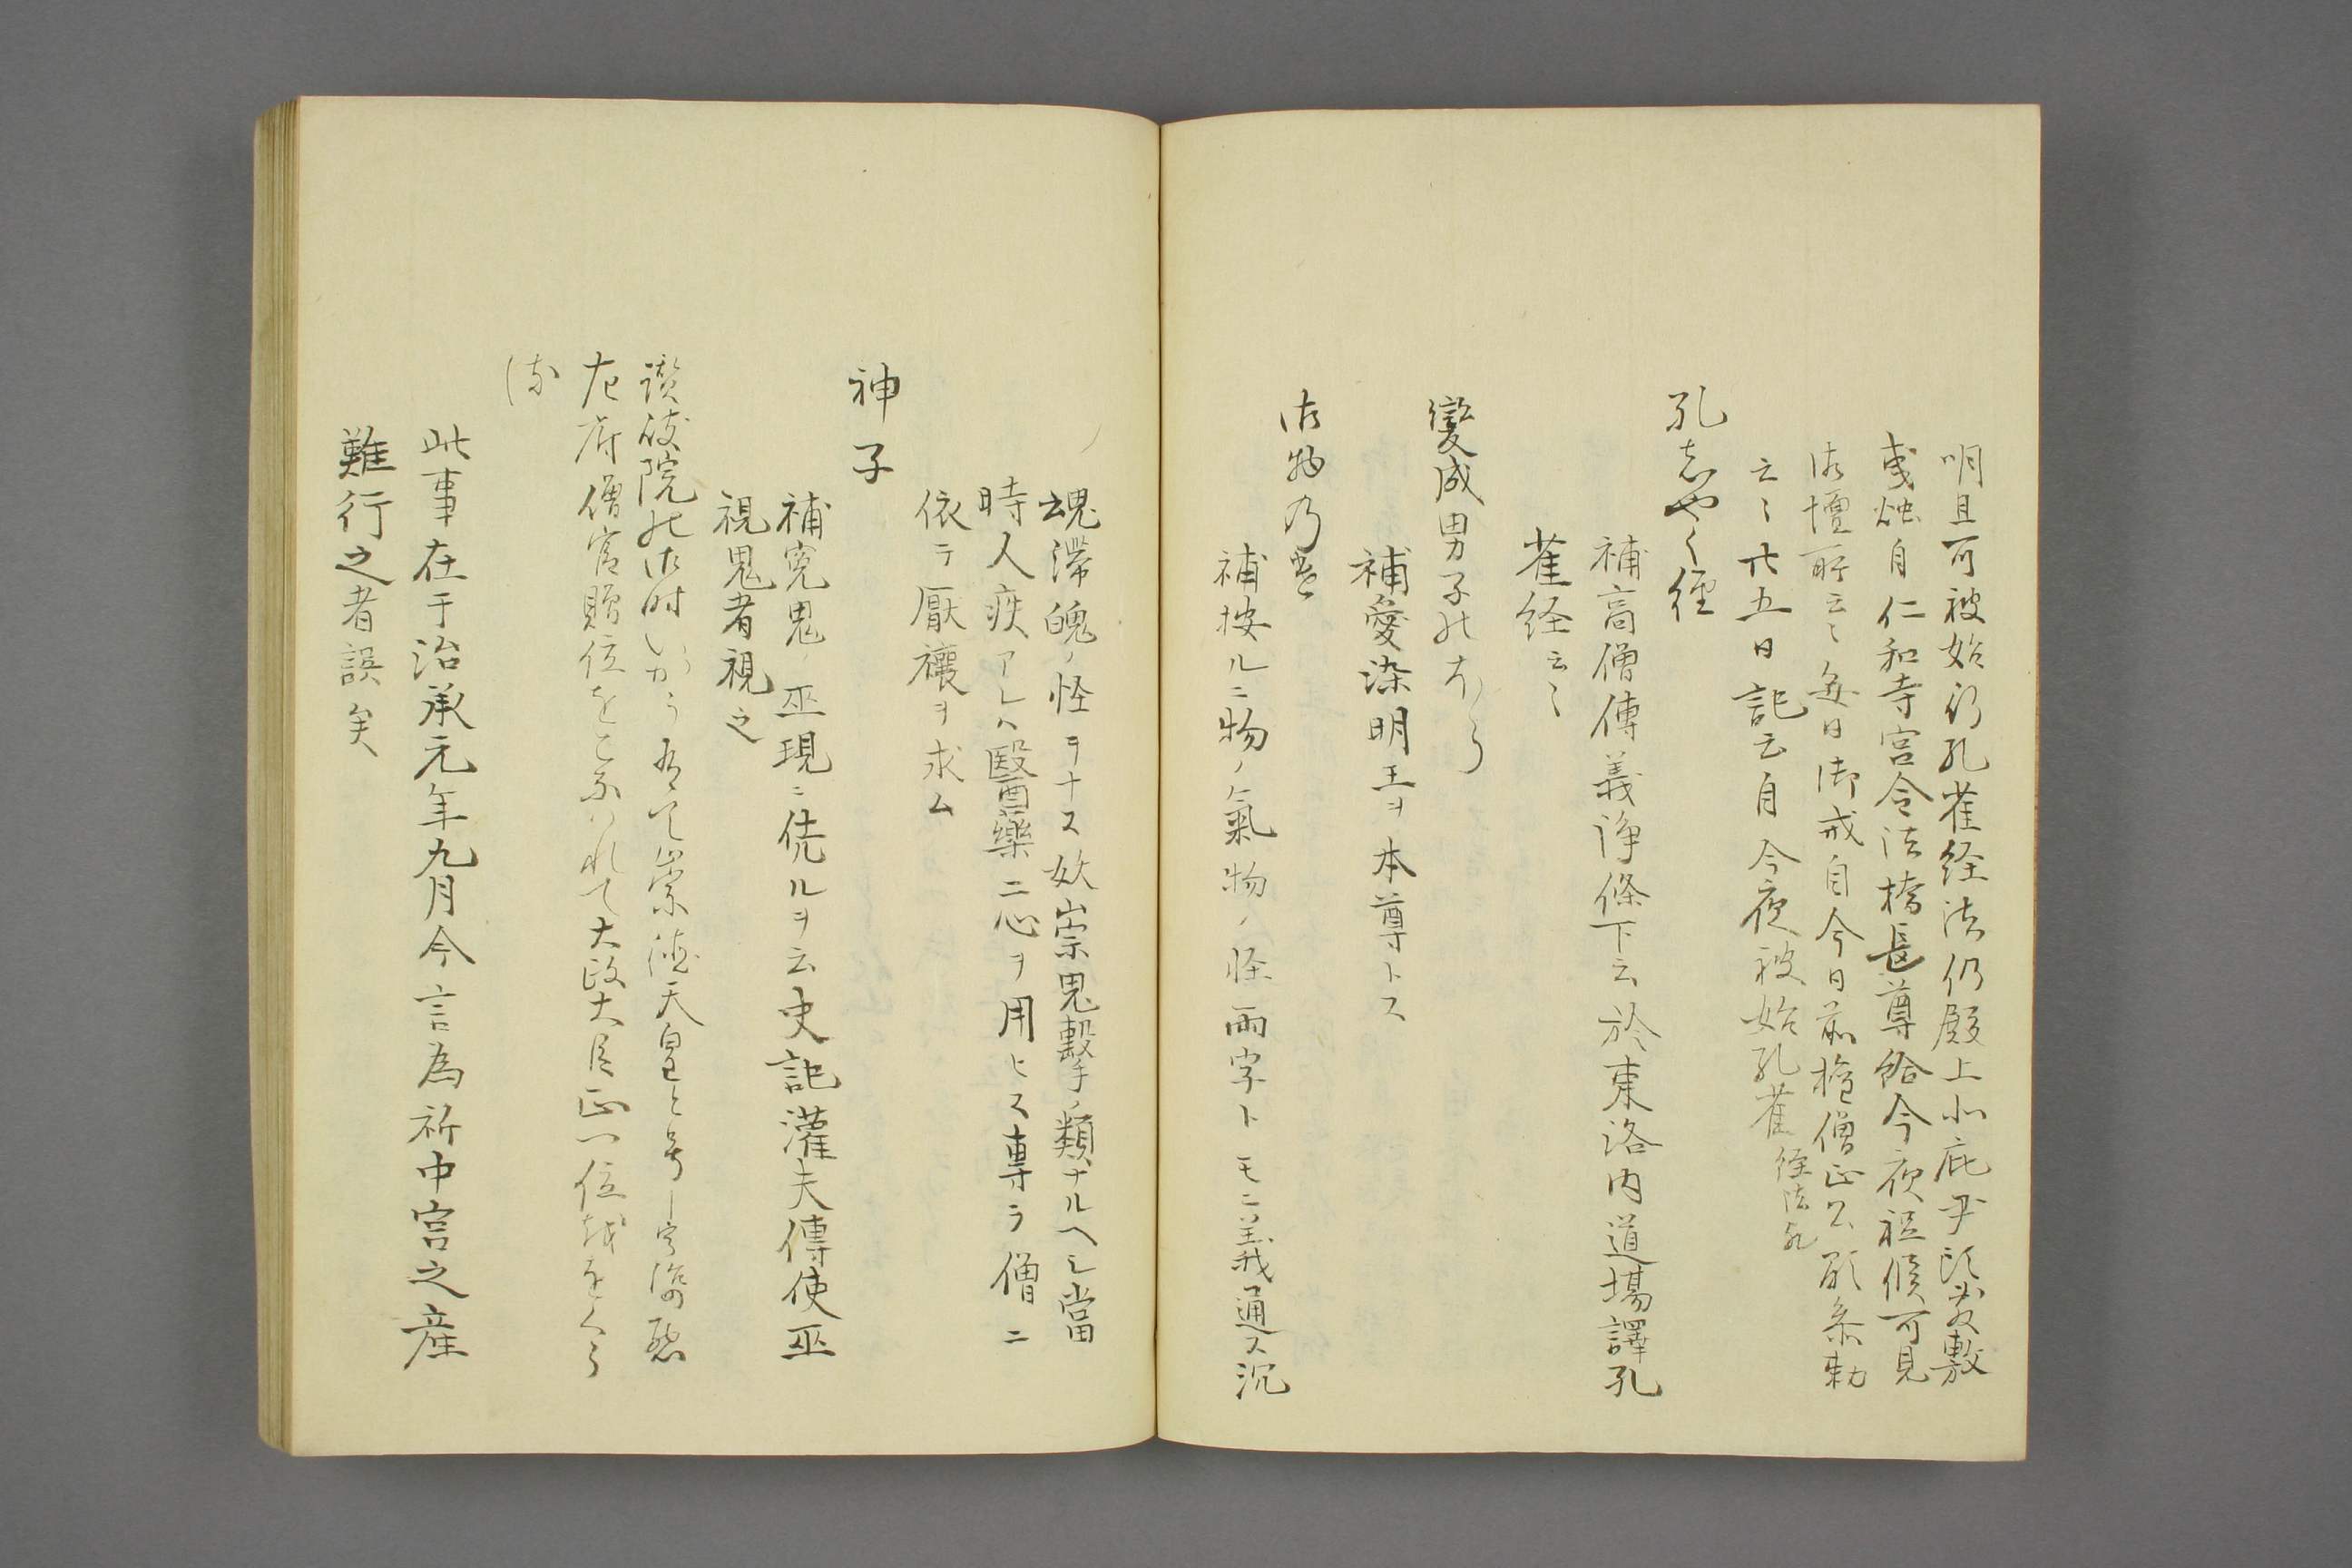 明旦可被始行孔雀経法仍殿上小庇
曳燭自仁和寺宮令法橋長尊給今夜祗候可見
御壇所云々毎日御戒自今日前権僧正公顕参勅
云々廿五日記云自今夜被始孔雀経法
孔志やく経
補高僧傳義浄條下云於東洛内道場譯孔
雀経云々
變成男子のほう
補愛染明王ヲ本尊トス
御物乃
補按ルニ物ノ氣物ノ怪両字トモニ義通ス沉
魂滞魄ノ怪ヲナス妖祟鬼撃ノ類ナルヘシ當
時人疾アレハ醫藥ニ心ヲ用ヒス専ラ僧ニ
依テ厭禳ヲ求ム
神子
補寃鬼ノ巫現ニ託ルヲ云史記灌夫傳使巫
視鬼者視之
讃岐院の御時いかう有て崇徳天皇と号し宇治悪
左府贈官贈位をこなはれて大政大臣正一位をくら
る
此事在于治承元年九月今言為祈中宮之産
難行之者誤矣